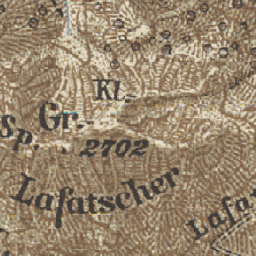 Kl.-
Gr.-
Sp.
2702
Lafatscher
Lafa